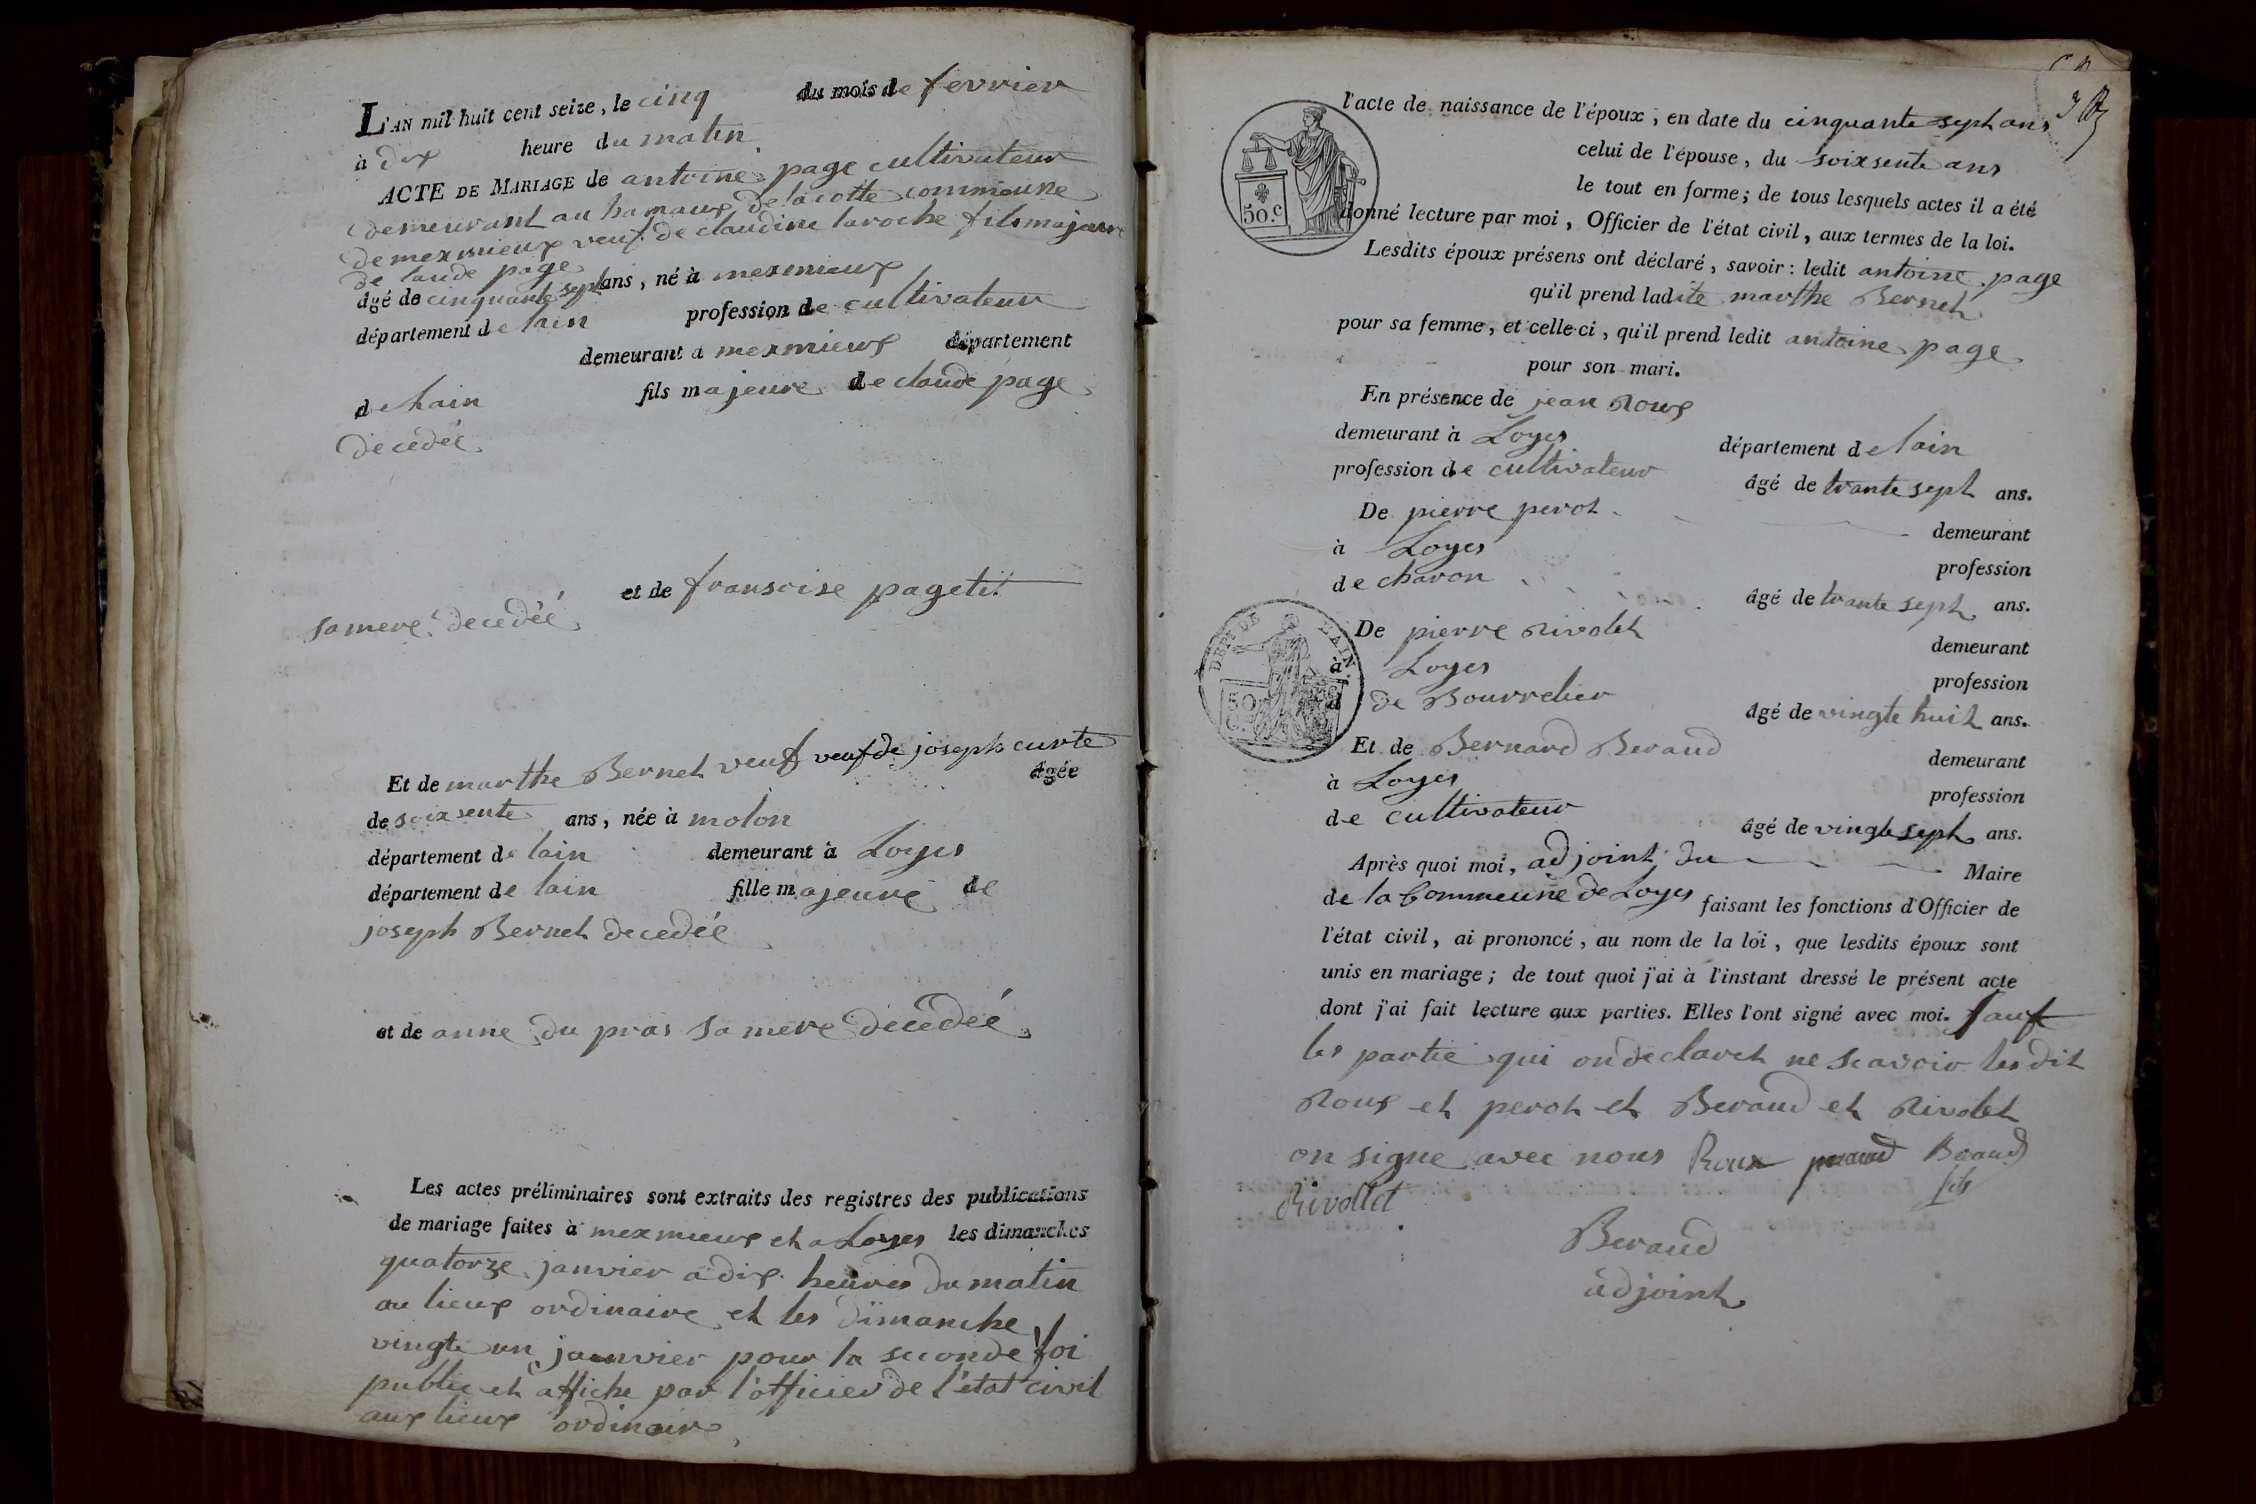 L'AN mil huit cent seize, le cinq du mois de fevrier
à dix heure du matin
ACTE DE MARIAGE de antoine page cultivateur
demeurant au hamaux de la cotte commeune
de mexmieux veuf de claudine laroche fils majeure
de laude page
âgé de cinquante sept ans, né à mexmieux
département de lain profession de cultivateur
demeurant a mexmieux département
de lain fils majeure de claude page
decedée
et de fransoise pageti
sa mere decedée
Et de marthe Bernet veuf veuf de joseph curte
âgée
de soixsente ans, née à molon
département de lain demeurant à Loyes
département de lain fille majeure de
joseph Bernet decedée
et de anne du pras sa mere decedée
Les actes préliminaires sont extraits des registres des publications
de mariage faites à mexmieux et a Loyes les dimanches
quatorze janvier a dix heures du matin
au lieux ordinaire et les dimanche
vingte un janvier pour la seconde foi
public et affiche par l'officier de l'etat civil
aux lieux ordinaire
l'acte de naissance de l'époux, en date du cinquante sept ans
celui de l'épouse, du soixsente ans
le tout en forme; de tous lesquels actes il a été
donné lecture par moi, Officier de l'état civil, aux termes de la loi.
50.c
Lesdits époux présens ont déclaré, savoir: ledit antoine page
qu'il prend ladite marthe Bernet
pour sa femme, et celle-ci, qu'il prend ledit antoine page
pour son mari.
En présence de jean Roux
demeurant à Loyes département de lain
profession de cultivateur âgé de trante sept ans.
De pierre perot demeurant
à Loyes profession
de charon âgé de trante sept ans.
De pierre Rivolet demeurant
à Loyes profession
de Bourrelier âgé de vingte huit ans.
DÉPT DE L'AIN
50 C
Et de Bernard Beraud demeurant
à Loyes profession
de cultivateur âgé de vingte sept ans.
Après quoi moi, adjoint du Maire
de la Commeune de Loyes faisant les fonctions d'Officier de
l'état civil, ai prononcé, au nom de la loi, que lesdits époux sont
unis en mariage; de tout quoi j'ai à l'instant dressé le présent acte
dont j'ai fait lecture aux parties. Elles l'ont signé avec moi. sauf
les partie qui on declaret ne scavoir les dit
Roux et perot et Beraud et Rivolet
on signe avec nous Roux Beraud
fils
Rivollet
Beraud
adjoint